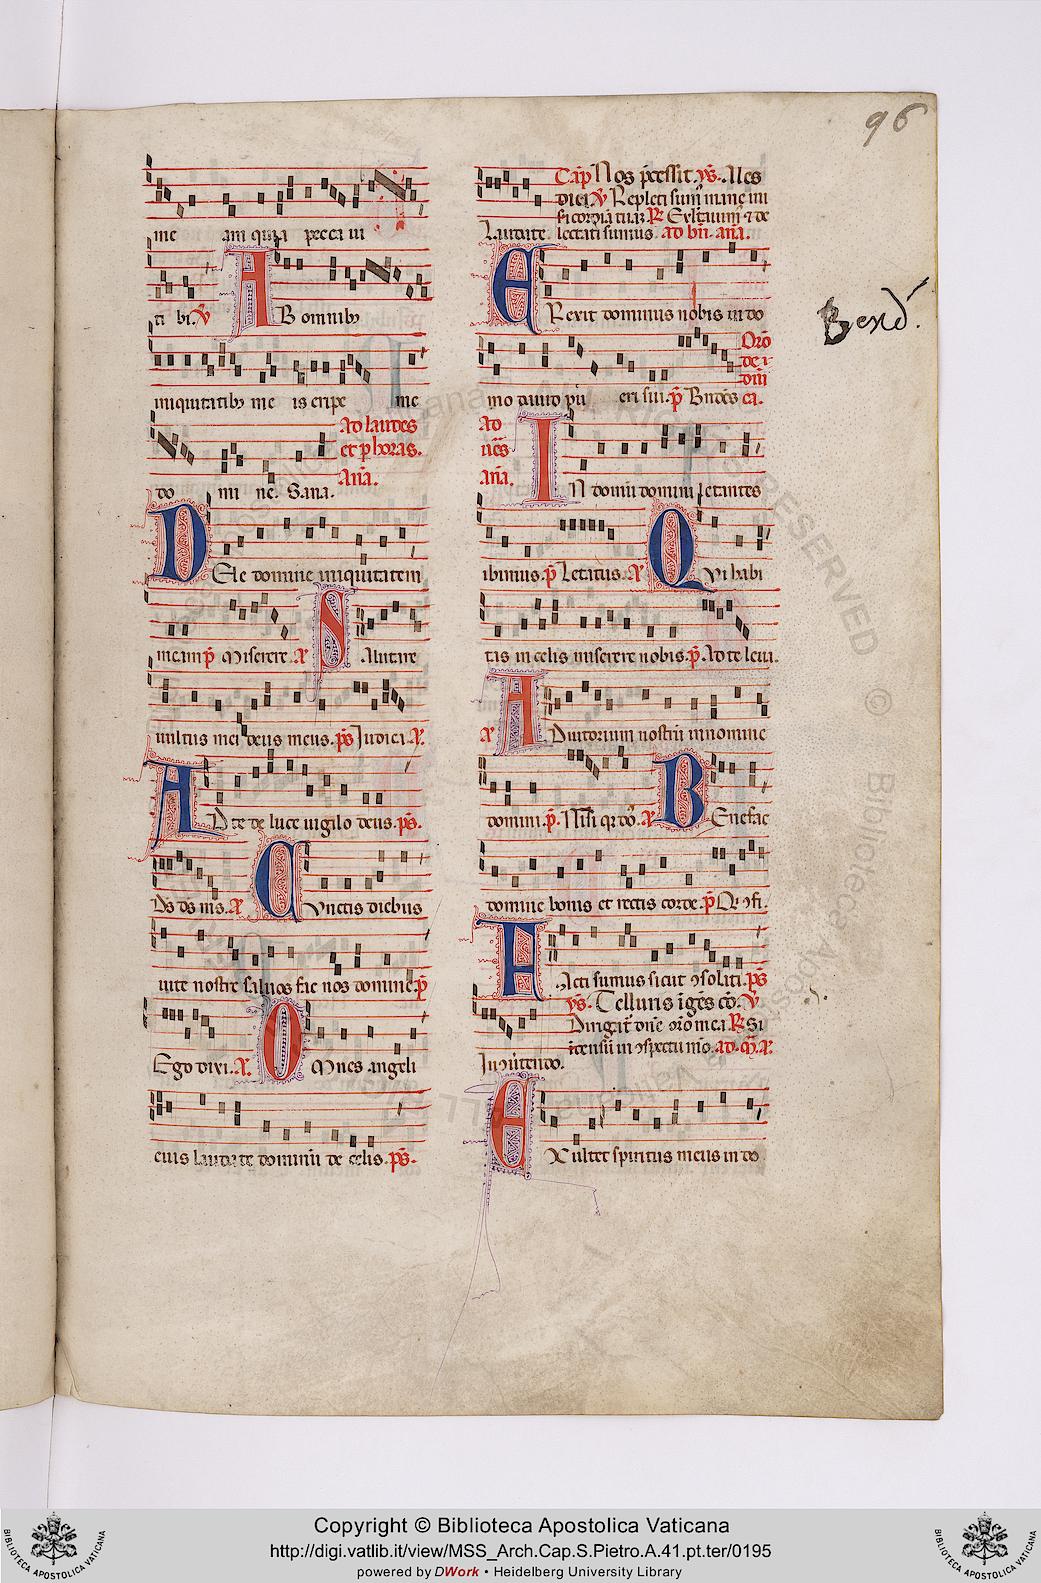 96
me am quia pecca ui
ti bi. V̄ AB omnibꝫ
iniquitatibꝫ me is eripe me
do mi ne. Sana.
Ad laudes
et p horas.
Añā.
DEle domine iniquitatem
meam p̄ Miserere. A SAlutare
uultus mei deus meus. p̄s Iudica A.
AD te de luce uigilo deus. p̄s.
D̄s d̄s m̄s. A CUnctis diebus
uite nostre saluos fac nos domine. p̄
Ego dixi. A. OMnes angeli
eius laudate dominū de celis. p̄s.
Laudate.
Cap̄ Nos p̄cessit. ys̄. Ales
diei V̄ Repleti sum̄ mane mi
sicordia tua. R̄ Exultauim̄ ⁊ de
lectati sumus. ad bn̄. anā.
ERexit dominus nobis in do
mo dauid pu eri sui. p̄ Bn̄dc̄s
Orō
de i
dn̄i
ca.
Ad
nēs
anā.
IN domū domini letantes
ibimus. p̄ Letatus. A QUi habi
tas in celis miserere nobis. p̄ Ad te leui.
A ADiutorium nostrū in nomine
domini. p̄. Nisi qꝛ dō. A BEnefac
domine bonis et rectis corde. p̄ Q̄ ꝯfi.
FActi sumus sicut ꝯsolati. p̄s
ys̄. Telluris īgēs cō. V̄
Dirigat̄ dn̄e or̄o mea R̄ Si
In ꝯūtendo.
ītensū in ꝯspectu tuo. ad. M̄. A.
EXultet spiritus meus in do
Bened.
Copyright © Biblioteca Apostolica Vaticana
http://digi.vatlib.it/view/MSS_Arch.Cap.S.Pietro.A.41.pt.ter/0195
powered by DWork • Heidelberg University Library
BIBLIOTECA APOSTOLICA VATICANA
BIBLIOTECA APOSTOLICA VATICANA